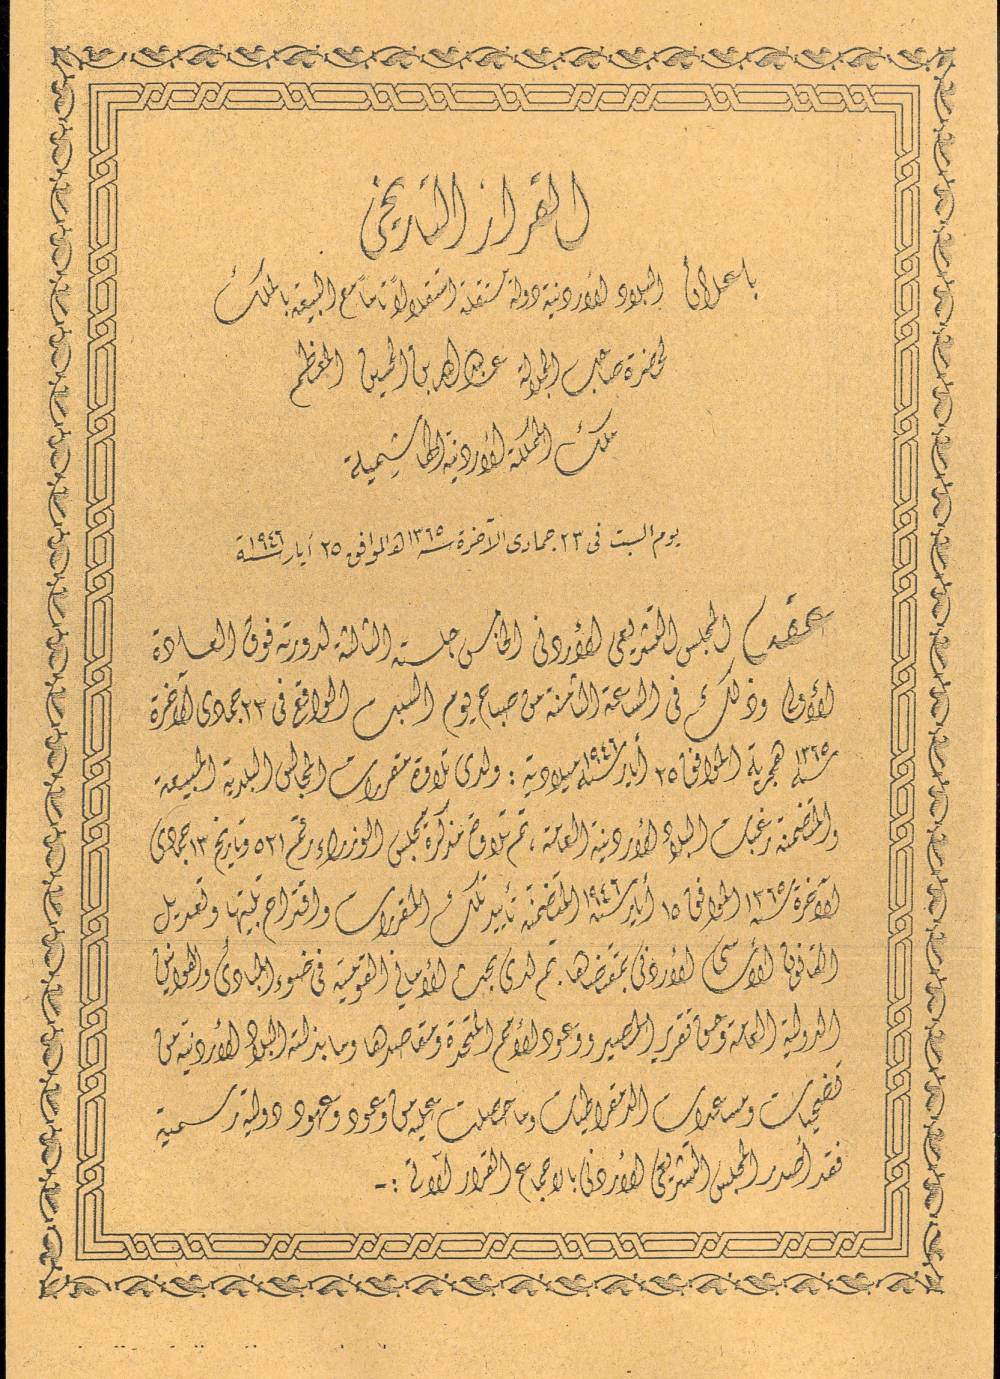 القرار التاريخي
باعلان البلاد الأردنية دولة مستقلة استقلالاً تاماً مع البيعة بالملك
لحضرة صاحب الجلالة عبدالله بن الحسين المعظم
ملك المملكة الأردنية الهاشمية
يوم السبت فى ٢٣ جمادى الآخرة سنة ١٣٦٥ هـ الموافق ٢٥ أيار سنة ١٩٤٦
عقد المجلس التشريعى الأردنى الخامس جلسته الثالثة لدورته فوق العادة
الأولى وذلك فى الساعة الثامنة من صباح يوم السبت الواقع فى ٢٣ جمادى الآخرة
سنة ١٣٦٥ هجرية الموافق ٢٥ أيار سنة ١٩٤٦ ميلادية : ولدى تلاوة مقررات المجالس البلدية المبيعة
والمتضمنة رغبات البلاد الأردنية العامة ، ثم تلاوة مذكرة مجلس الوزراء رقم ٥٢١ وتاريخ ١٣ جمادى
الآخرة سنة ١٣٦٥ الموافق ١٥ أيار سنة ١٩٤٦ المتضمنة تأييد تلك المقررات واقتراح تلبيتها وتعديل
القانون الأساسى الأردنى بمقتضاها . ثم لدى بحث الأمانى القومية فى ضوء المبادئ والمواثيق
الدولية العامة وحق تقرير المصير ووعود الأمم المتحدة ومقاصدها وما بذلته البلاد الأردنية من
تضحيات ومساعدات للدمقراطيات وما حصلت عليه من وعود وعهود دولية رسمية
فقد أصدر المجلس التشريعى الأردنى بالاجماع القرار الآتى :-